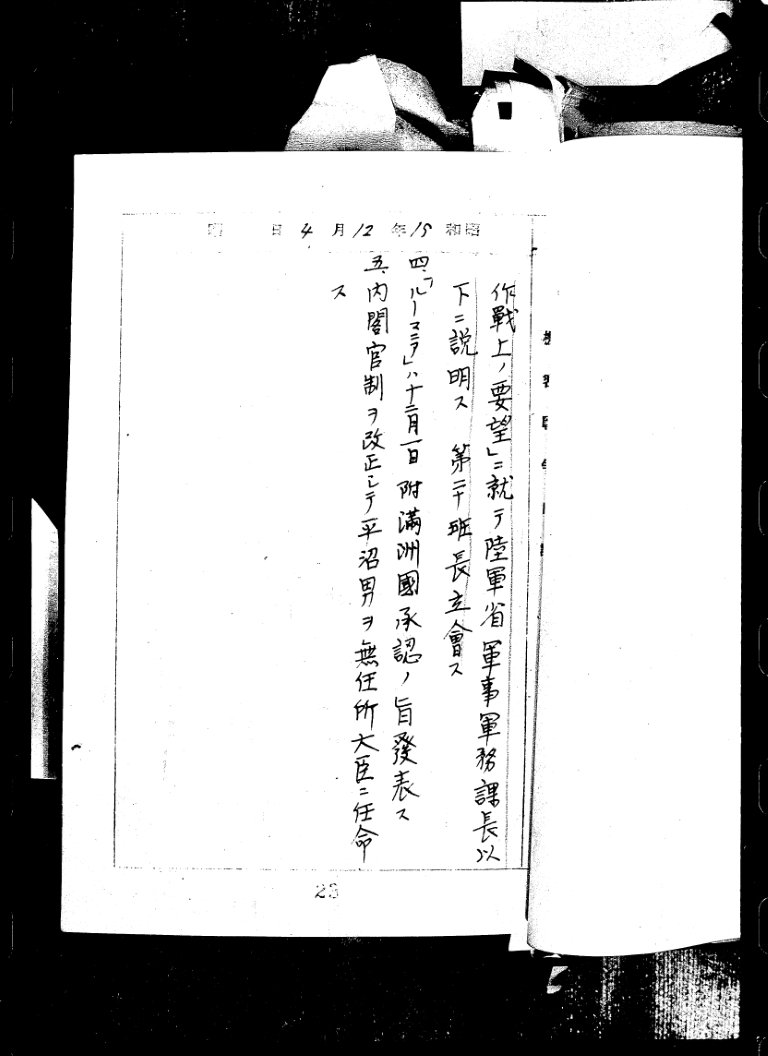 昭和15年12月4日 曜
作戰上ノ要望」ニ就テ陸軍省軍事軍務課長以
下ニ説明ス 第二十班長立會ス
四、「ルーマニア」ハ十二月一日附滿洲國承認ノ旨發表ス
五、内閣官制ヲ改正シテ平沼男ヲ無任所大臣ニ任命
ス
23